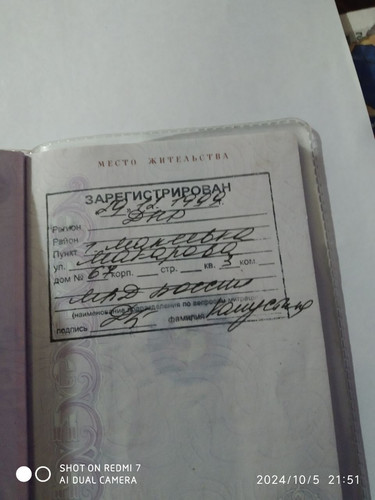 МЕСТО ЖИТЕЛЬСТВА
ЗАРЕГИСТРИРОВАН
Регион ДНР
Район
Пункт г. Макеевка
ул. Макарова
дом № 67 корп. стр. кв. 3 ком.
МВД России
(наименование подразделения по вопросам миграции)
подпись фамилия
SHOT ON REDMI 7
AI DUAL CAMERA
2024/10/5 21:51